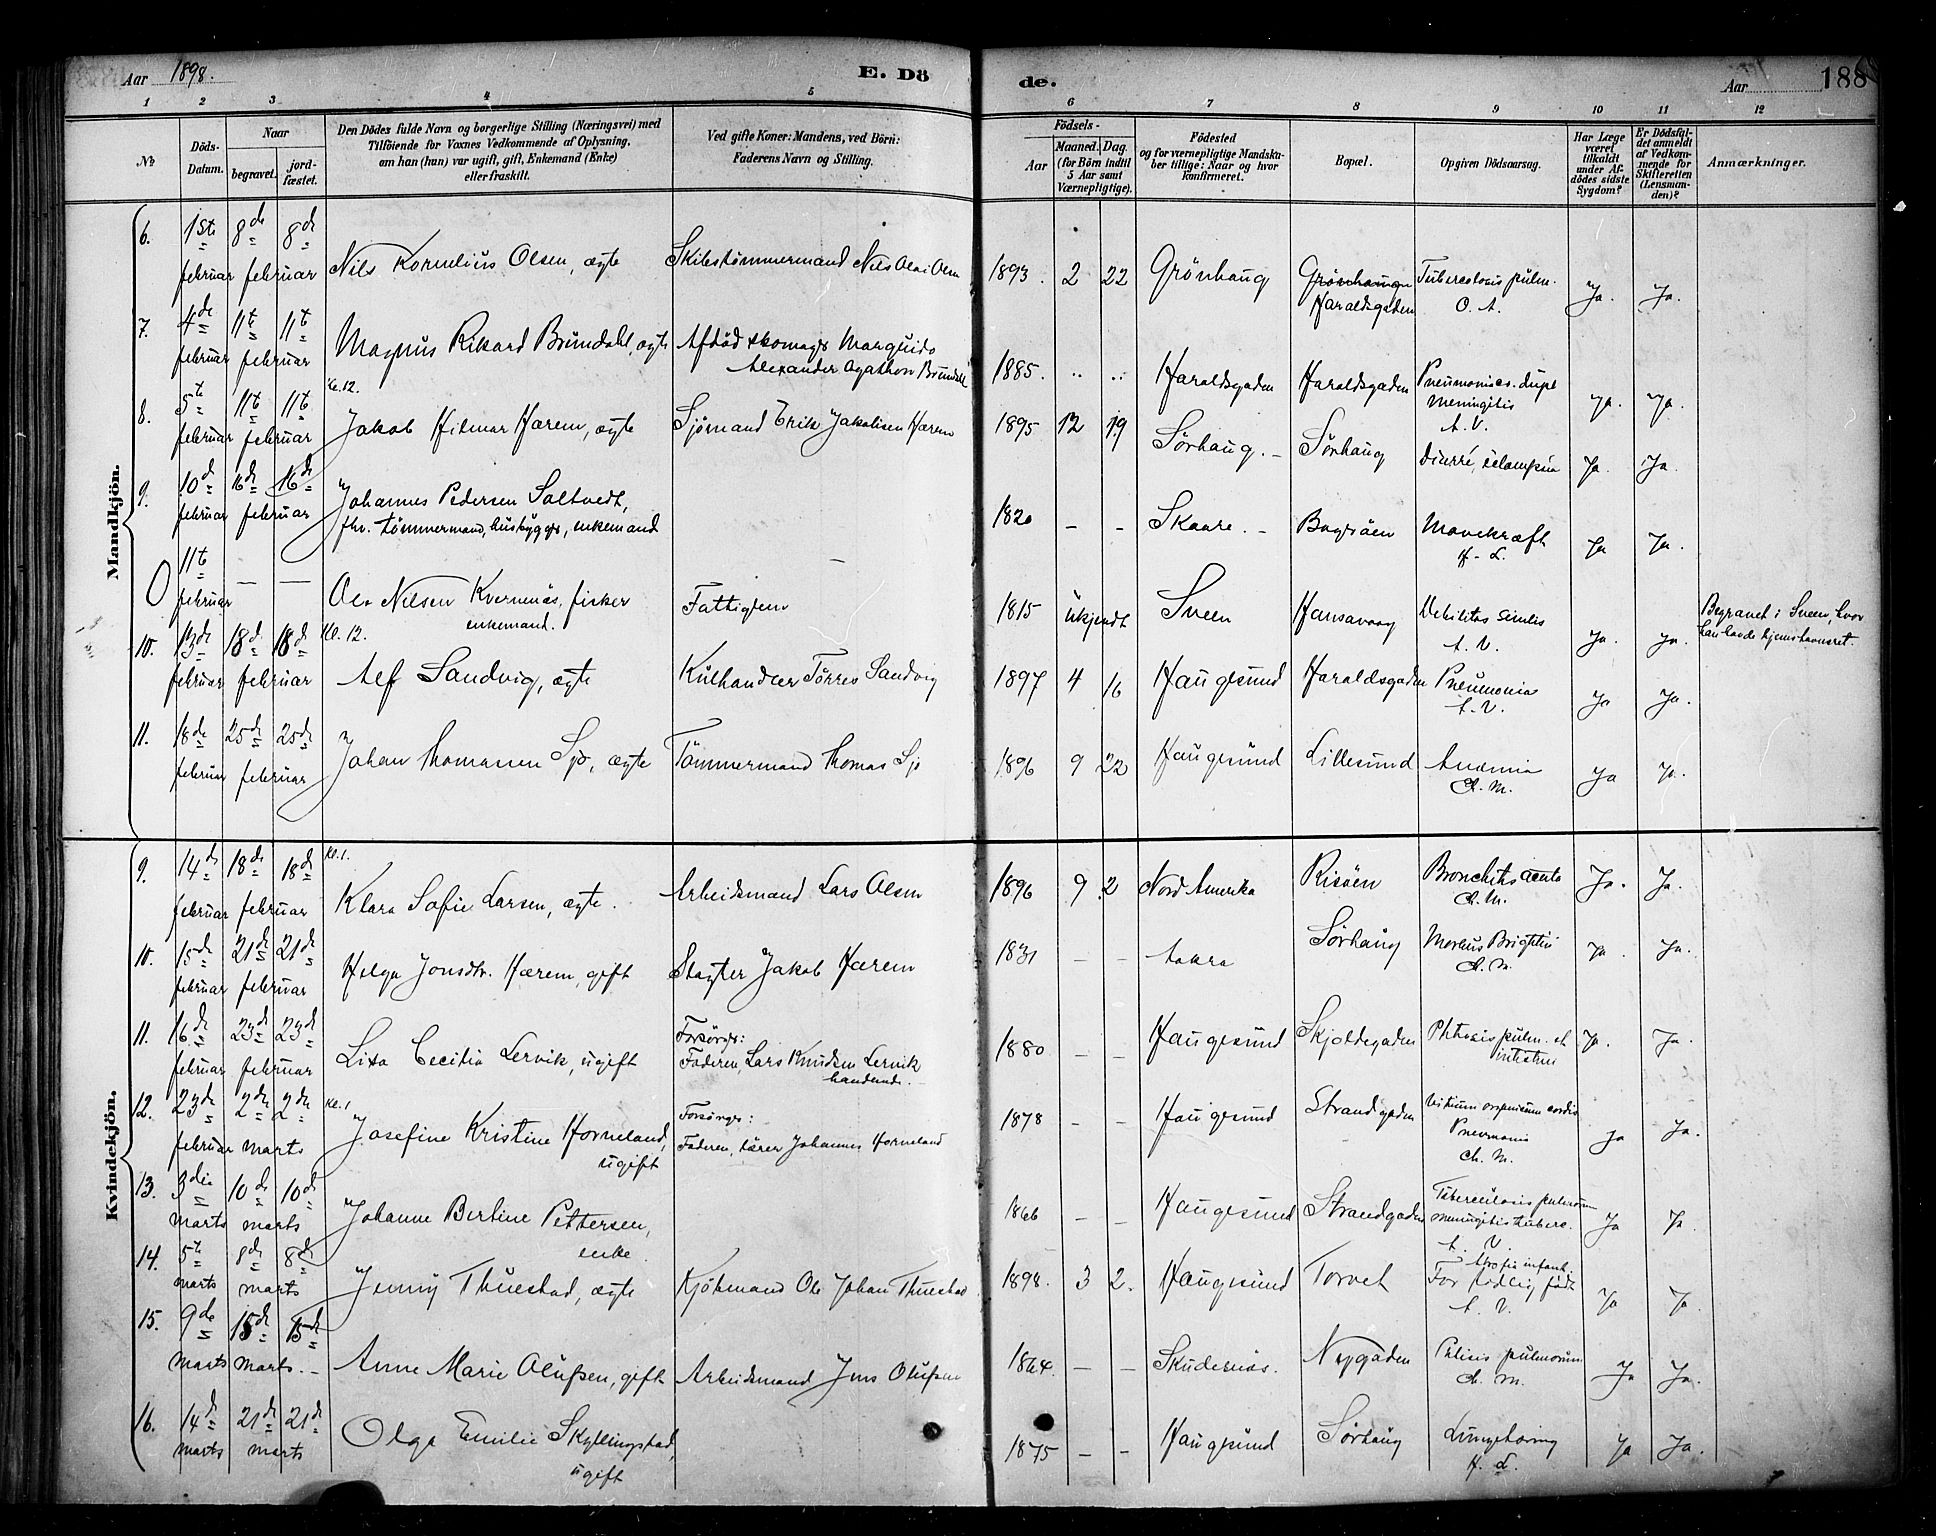 Aar 1898.
E. Dö
de.
Aar 188
1 2 3 4 5 6 7 8 9 10 11 12
No
Döds-
Datum.
Naar
begravet.
jord-
fæstet.
Den Dödes fulde Navn og borgerlige Stilling (Næringsvei) med
Tilföiende for Voxnes Vedkommende af Oplysning,
om han (hun) var ugift, gift, Enkemand (Enke)
eller fraskilt.
Ved gifte Koner: Mandens, ved Börn:
Faderens Navn og Stilling.
Födsels-
Aar
Maaned. Dag.
(for Börn indtil
5 Aar samt
Værnepligtige).
Födested
og for værnepligtige Mandska-
ber tillige: Naar og hvor
konfirmeret.
Bopæl.
Opgiven Dödsaarsag.
Har Læge
været
tilkaldt
under Af-
dödes sidste
Sygdom?
Er Dödsfal-
det anmeldt
af Vedkom-
mende for
Skifteretten
(Lensman-
den)?
Anmærkninger.
Mandkjön.
6. 1ste 8de 8de
februar februar Nils Kornelius Olsen, ægte Skibstømmermand Nils Olai Olsen 1893. 2 22 Grönhaug Grönhaugn Tuberculosis pulm. Ja. Ja.
Haraldsgaden O. A.
7. 4de 11te 11te
februar februar Magnus Rikard Brundahl, ægte Afdöd skomager Marquido
Alexander Agathon Brundahl 1885. .. .. Haraldsgaden Haraldsgaden Pneumonia c. dupl Ja. Ja.
Meningitis
A. V.
Kl. 12.
8. 5te 11te 11te
februar februar Jakob Hilmar Hærem, ægte Sjömand Erik Jakobsen Hærem 1895 12 19 Sörhaug. - Sörhaug Diarré, eclampsia Ja. Ja.
9. 10de 16de 16de
februar februar Johannes Pedersen Saltvedt,
fhv. tömmermand, husbygger, enkemand 1820 - - Skaare. - Bagröen Mavekræft Ja Ja.
H. L.
11te
februar — — Ole Nilsen Kvernenös, fisker Fattiglem 1815 ukjendt Sveen Hansavaag Debilitas senilis Ja. Ja. Begravet i Sveen, hvor
enkemand. A. V. han havde hjemstavnsret.
Kl. 12.
10. 13de 18de 18de
februar februar Alf Sandvig, ægte Kulhandler Törres Sandvig 1897 4 16 Haugesund Haraldsgaden Pneumonia Ja Ja.
A. V.
11. 18de 25de 25de
februar februar Johan Thomassen Sjo, ægte Tömmermand Thomas Sjo 1896 9 22 Haugesund Lillesund Anæmia Ja Ja.
Ch. M.
Kvindekjön.
Kl. 1.
9. 14de 18de 18de
februar februar Klara Sofie Larsen, ægte. Arbeidsmand Lars Olsen 1896 9 2 Nord Amerika Risöen Bronchitis acuta Ja. Ja.
Ch. M.
10. 15de 21de 21de
februar februar Helga Jonsdtr. Hærem, gift Slagter Jakob Hærem 1831 - - Aakra Sörhaug Morbus Brightii Ja Ja.
Ch. M.
11. 16de 23de 23de
februar februar Lisa Cecilia Lervik, ugift Forsörger:
Faderen, Lars Knudsen Lervik
handlende. 1880 - - Haugesund Skjoldegaden Phtisis pulm. et Ja. Ja.
intestin
Kl. 1
12. 23de 2den 2den
februar marts Josefine Kristine Horneland,
ugift Forsörger:
Faderen, lærer Johannes Horneland 1878 - - Haugesund Strandgaden Vitium organicum cordis Ja Ja.
Pneumonia
Ch. M.
13. 3die 10de 10de
marts marts Johanne Bertine Pettersen,
enke. 1866 - - Haugesund Strandgaden Tuberculosis pulmonum Ja Ja.
Meningitis tuberc.
A. V.
14. 5te 8de 8de
marts marts Jenny Thuestad, ægte Kjöbmand Ole Johan Thuestad 1898. 3 2. Haugesund Torvet Atrofia infant. Ja Ja.
For tidlig födt
A. V.
15. 9de 15de 15de
marts marts. - Anne Marie Olufsen, gift Arbeidsmand Jens Olufsen 1864. - - Skudesnæs. Nygaden Phtisis pulmonum Ja Ja.
Ch. M.
16. 14de 21de 21de
marts marts Olga Emilie Skyllingstad,
ugift 1875 - - Haugesund Sörhaug Lungetæring Ja Ja.
H. L.